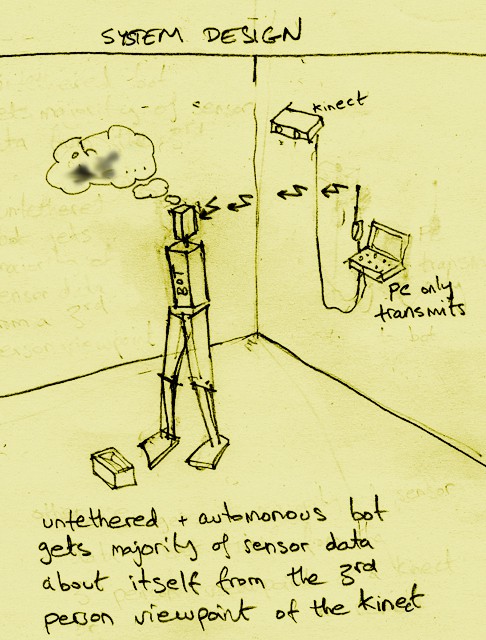 SYSTEM DESIGN
kinect
oh
BOT
PC only
transmits
untethered + automonous bot
gets majority of sensor data
about itself from the 3rd
person viewpoint of the kinect